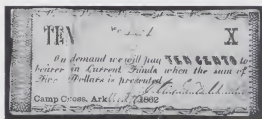 TEN X
On demand we will pay TEN CENTS to
bearer in Current Funds when the sum of
Five Dollars is presented
Camp Cross, Ark 1862